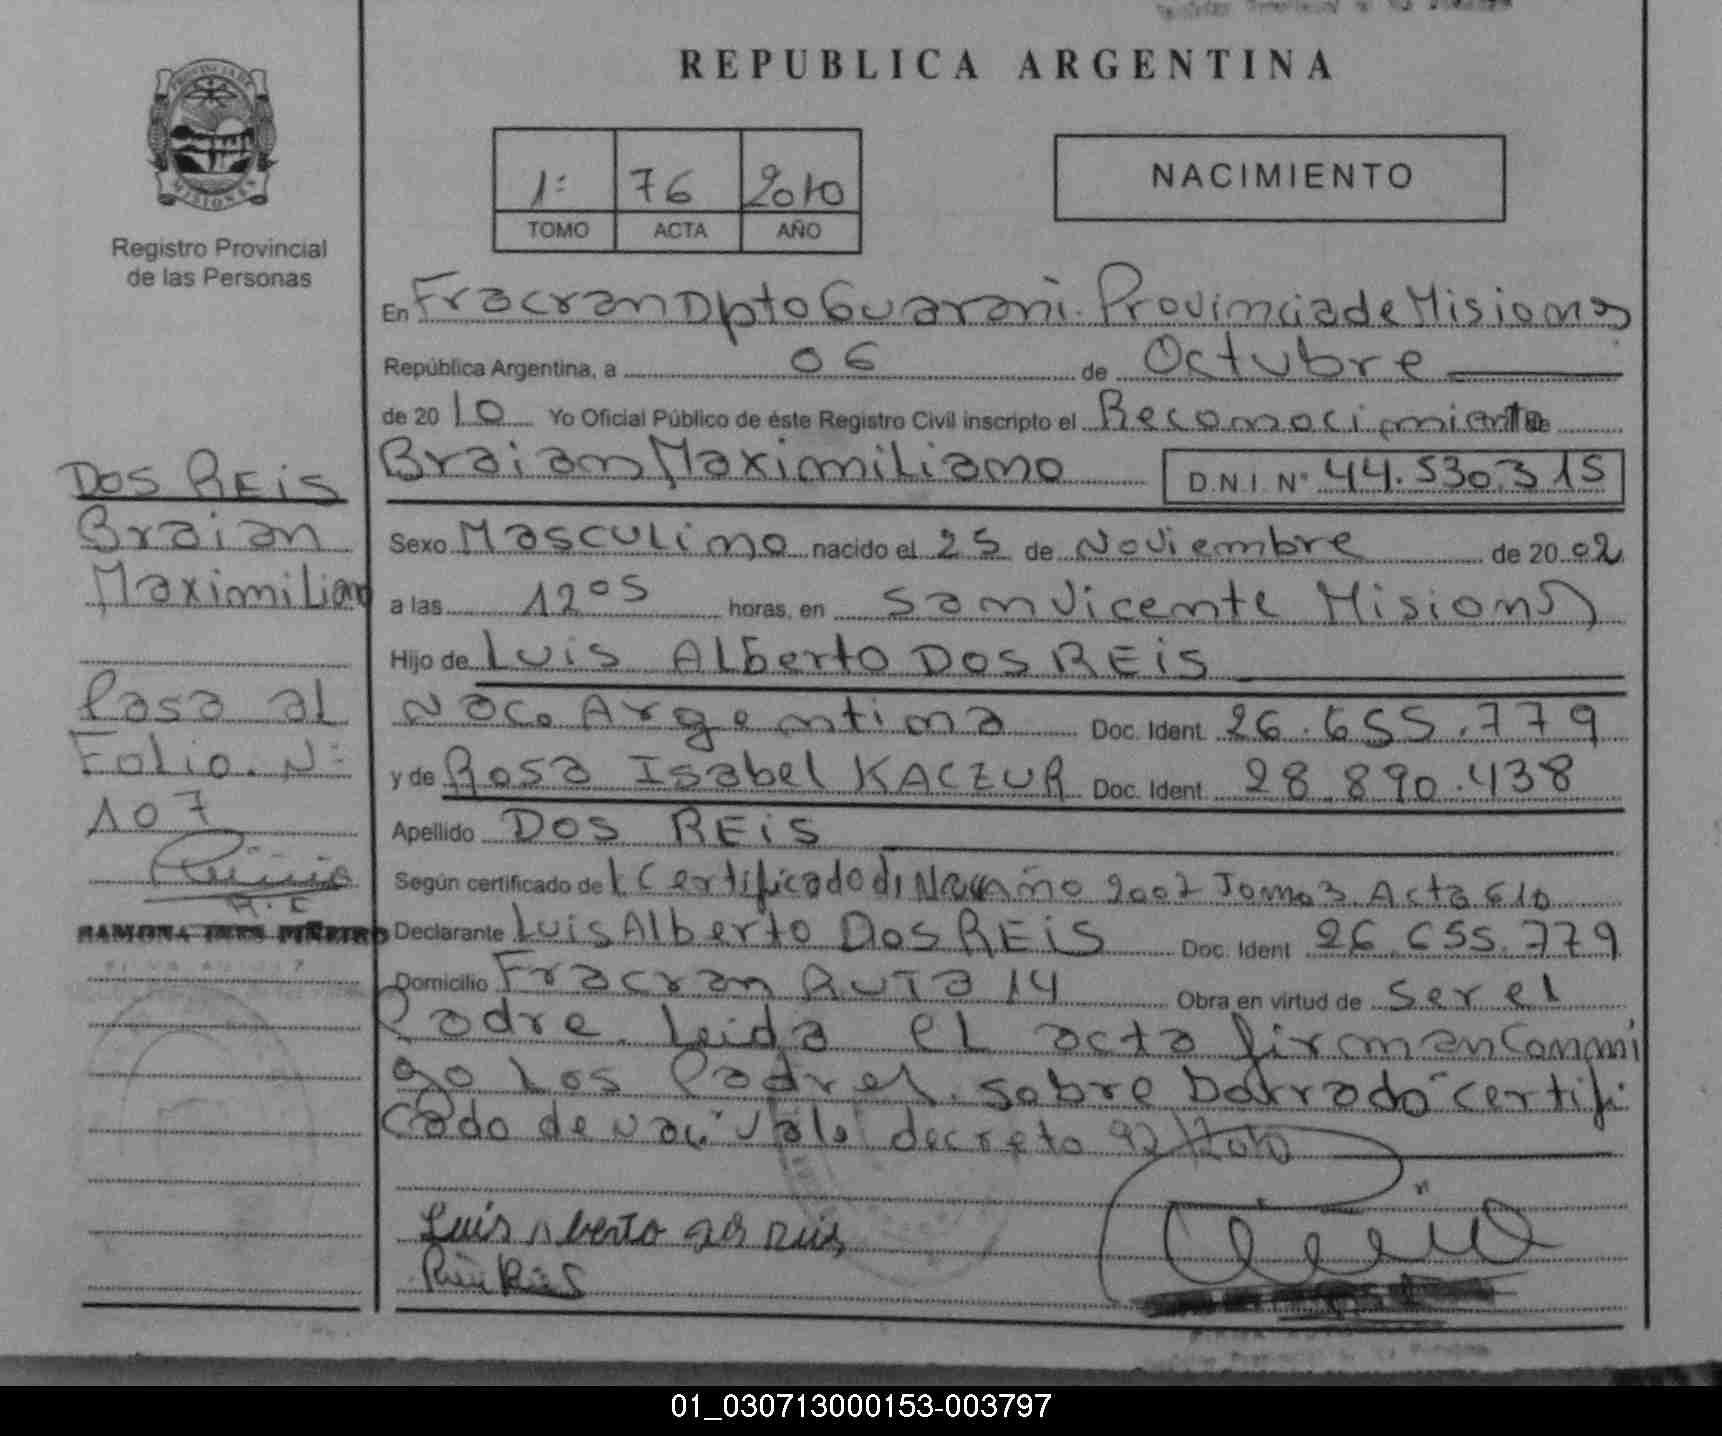 REPUBLICA ARGENTINA
PROVINCIA DE
MISIONES
Registro Provincial
de las Personas
1º 76 2010
TOMO ACTA AÑO
NACIMIENTO
En Fracran Dpto Guarani. Provincia de Misiones
República Argentina, a 06 de Octubre
de 2010 Yo Oficial Público de éste Registro Civil inscripto el Reconocimiento
Braian Maximiliano D.N.I. Nº 44.530.315
Sexo Masculino nacido el 25 de Noviembre de 2002
a las 12 05 horas, en San Vicente Misiones
Hijo de Luis Alberto DOS REIS
Nac. Argentina Doc. Ident. 26.655.779
y de Rosa Isabel KACZUR Doc. Ident. 28.890.438
Apellido DOS REIS
Según certificado de Certificado de año 2007 Tomo 3 Acta 610
Declarante Luis Alberto Dos REIS Doc. Ident. 26.655.779
Domicilio Fracran RUTA 14 Obra en virtud de ser el
Padre. Leida el acta firman conmi
go los Padres. sobre barrado "certifi
cado de nac" vale decreto 92/2010
DOS REIS
Braian
Maximiliano
Pasa al
Folio. Nº
107
RAMONA INES PIÑEIRO
Luis Alberto dos Reis
01_030713000153-003797